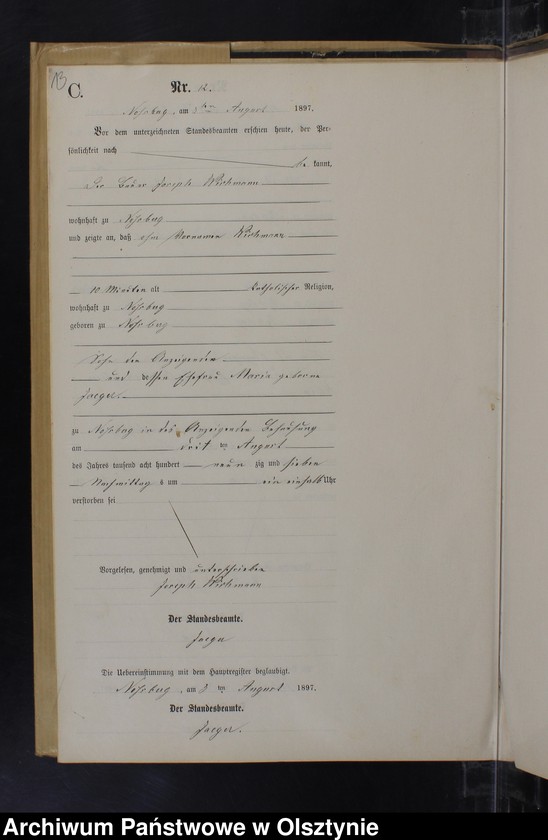 13
C.
Nr. 12.
am August 1897.
Vor dem unterzeichneten Standesbeamten erschien heute, der Per-
sönlichkeit nach
be kannt,
Der Joseph Wichmann
wohnhaft zu
und zeigte an, daß ohne Vornamen Wichmann
10 Minuten alt katholischer Religion,
wohnhaft zu
geboren zu
Sohn des Anzeigenden
und dessen Ehefrau Maria geborne
Jaeger
zu in des Anzeigenden Behausung
am August
des Jahres tausend acht hundert neun zig und sieben
Nachmittag s um ein einhalb Uhr
verstorben sei
Vorgelesen, genehmigt und unterschrieben
Joseph Wichmann
Der Standesbeamte.
Jaeger
Die Uebereinstimmung mit dem Hauptregister beglaubigt.
am 3 ten August 1897.
Der Standesbeamte.
Jaeger.
Archiwum Państwowe w Olsztynie